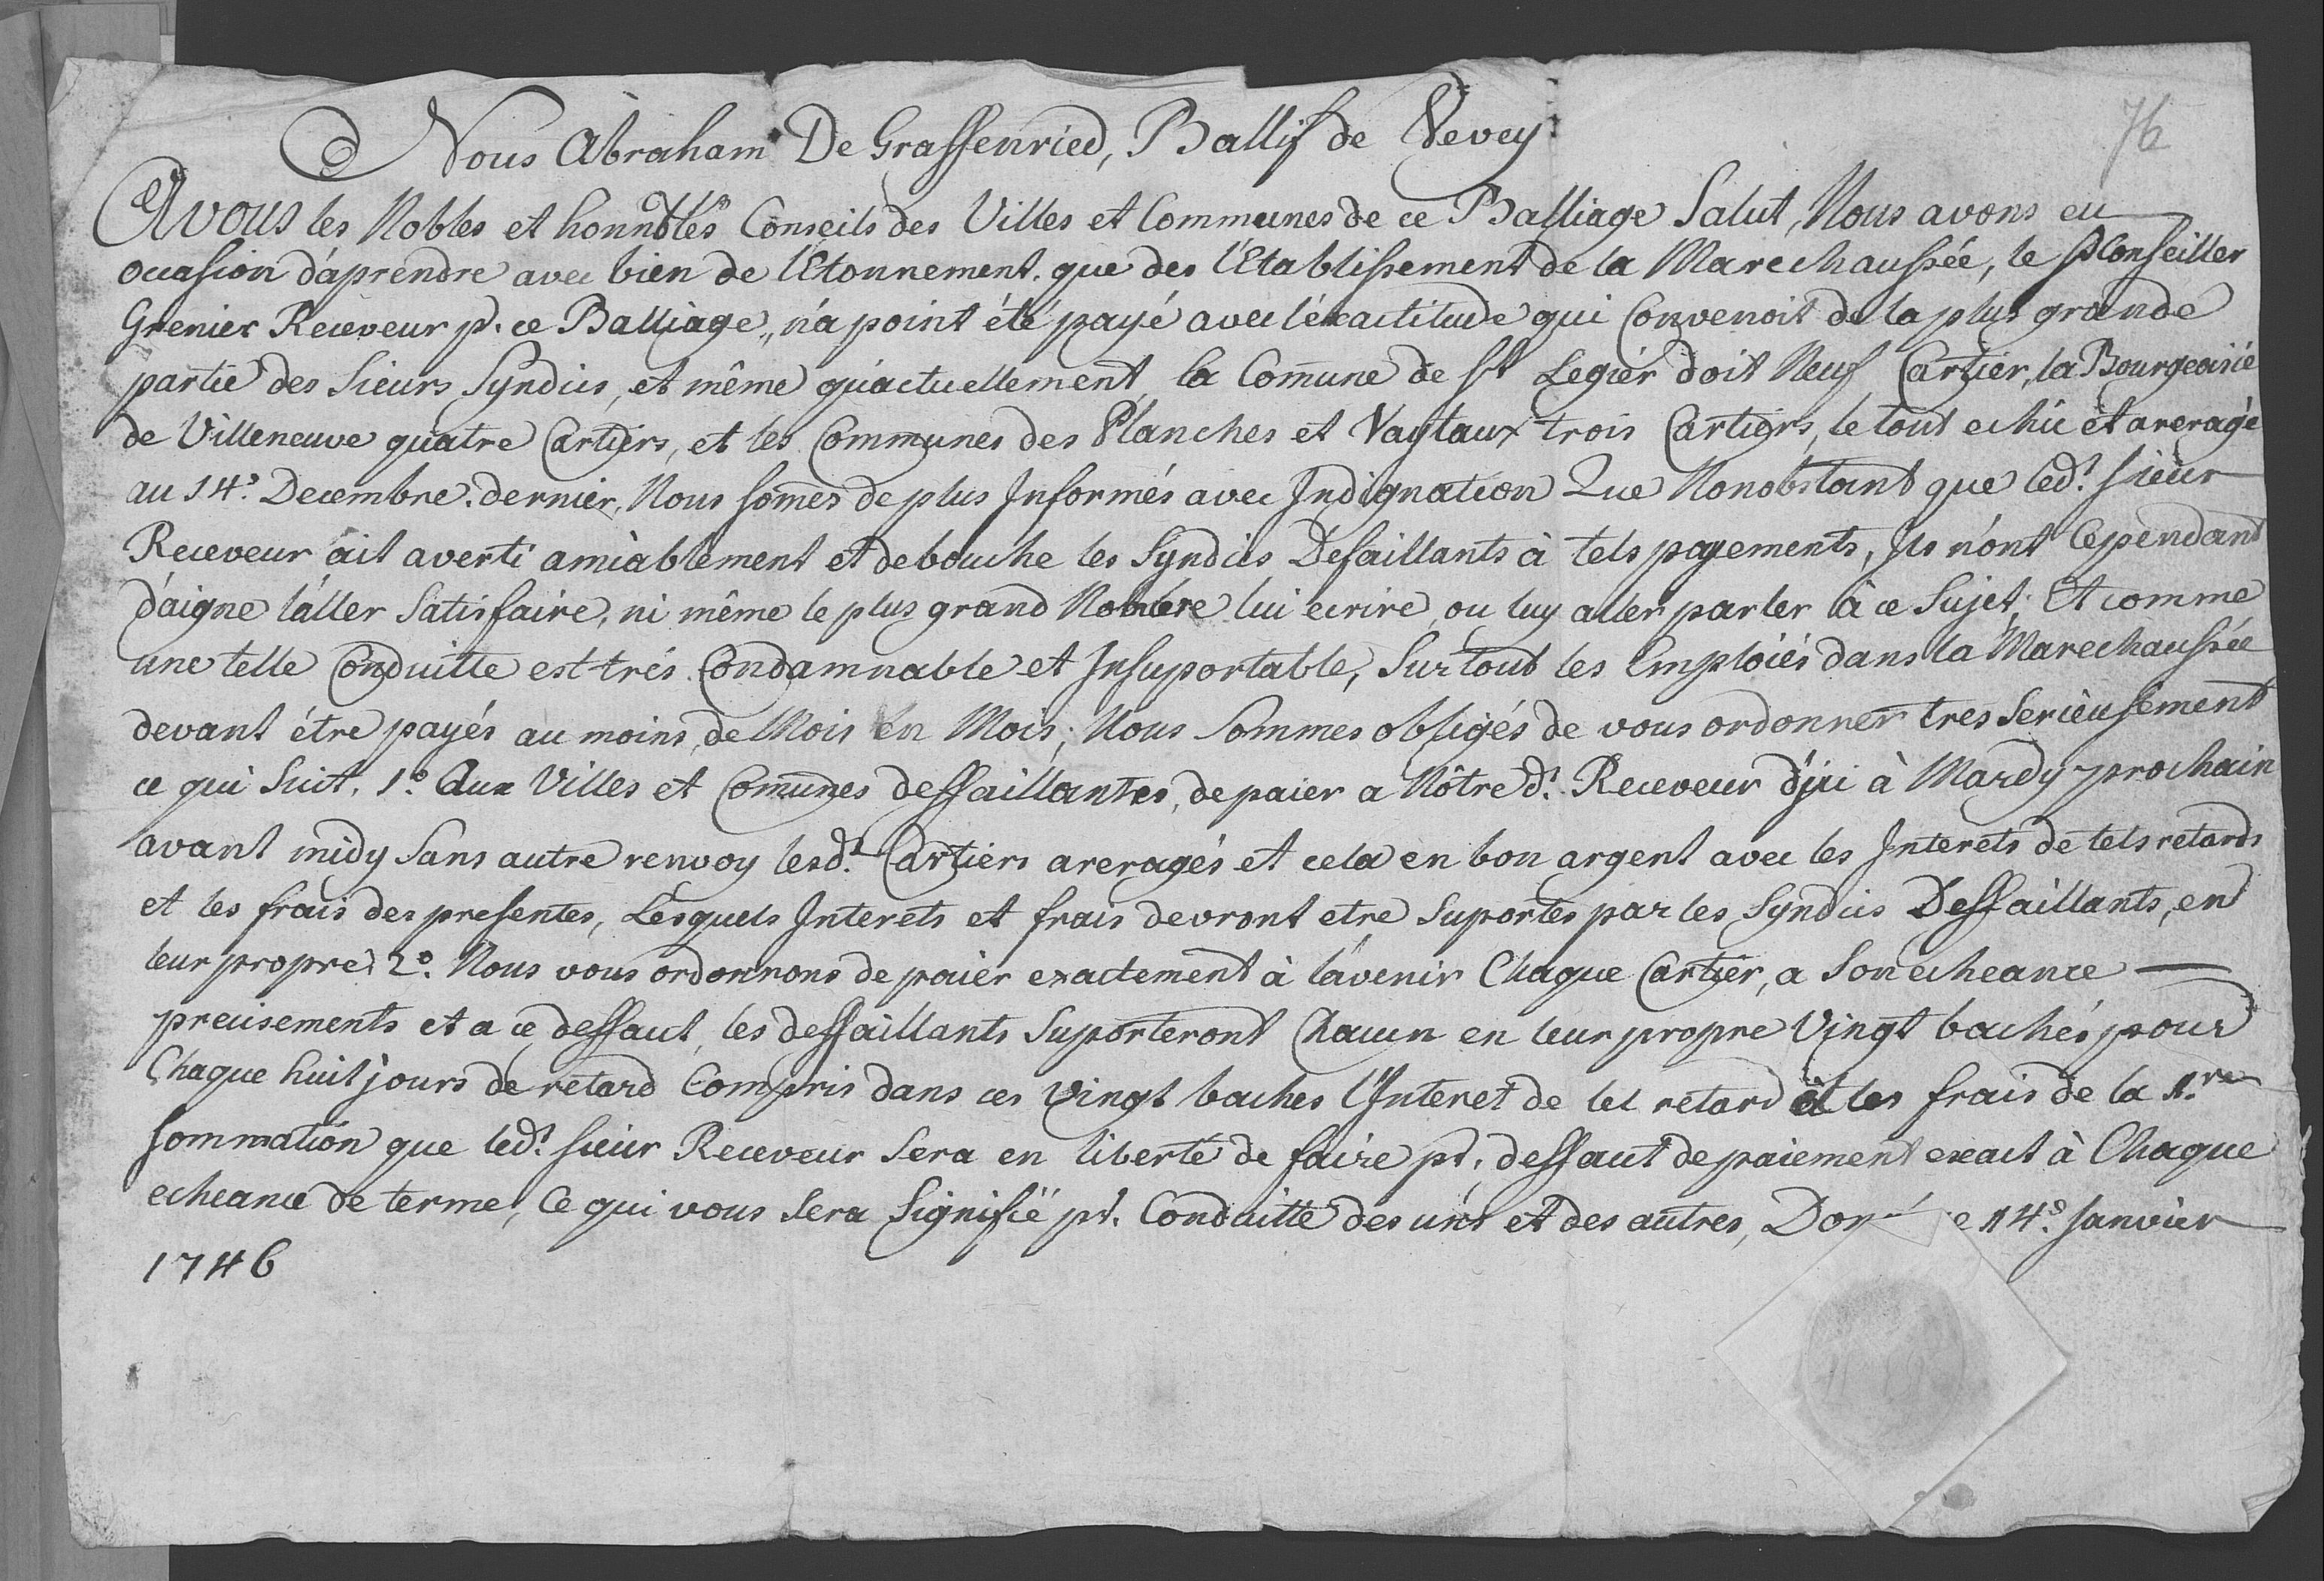 76
Nous Abraham De Graffenried, Ballif de Vevey
A vous les Nobles et honnbles Conseils des Villes et Communes de ce Balliage Salut, Nous avons eu
occasion d'aprendre avec bien de l'Etonnement. que des l'Etablissement de la Marechaussée, le Sr Conseiller
Grenier Receveur pr. ce Balliage, n'a point été payé avec l'éxactitude qui Convenoit de la plus grande
partie des Sieurs Syndics, et même qu'actuellement, la Comune de St Legier doit Neuf Cartier, la Bourgeoisie
de Villeneuve quatre Cartiers, et les Communes des Planches et Vaytaux trois Cartiers, le tout echû et areragé
au 14e. Decembre. dernier, Nous somes de plus Informés avec Indignation Que Nonobstant que ledt. sieur
Receveur ait averti amiablement et de bouche les Syndics Defaillants à tels payements, Ils n'ont Cependant
d'aigne l'aller Satisfaire, ni même le plus grand Nombre lui ecrire, ou luy aller parler à ce Sujet; Et comme
une telle Conduitte est trés Condamnable et Insuportable, Surtout les Emploiés dans la Marechaussée
devant être payés au moins, de Mois en Mois; Nous Sommes obligés de vous ordonner tres Serieusement
ce qui Suit. 1o. Aux Villes et Comunes deffaillantes, de paier a Nôtre dt. Receveur d'jci à Mardy prochain
avant midy Sans autre renvoy lesdt. Cartiers areragés et cela en bon argent avec les Interets de tels retards
et les frais des presentes, Lesquels Interets et frais devront etre Suportés par les Syndics Deffaillants, en
leur propre; 2o. Nous vous ordonnons de paier exactement à l'avenir Chaque Cartier, a Son echeance —
precisements et a ce deffaut, les deffaillants Suporteront Chacun en leur propre Vingt bachés pour
Chaque huit jours de retard Compris dans ces Vingt baches l'Interet de tel retard et les frais de la 1re
sommation que ledt. sieur Receveur Sera en liberté de faire pr. deffaut de paiement exact à Chaque
echeance de terme, Ce qui vous Sera Signifié pr. Conduitte des uns et des autres, 14e. Janvier
1746